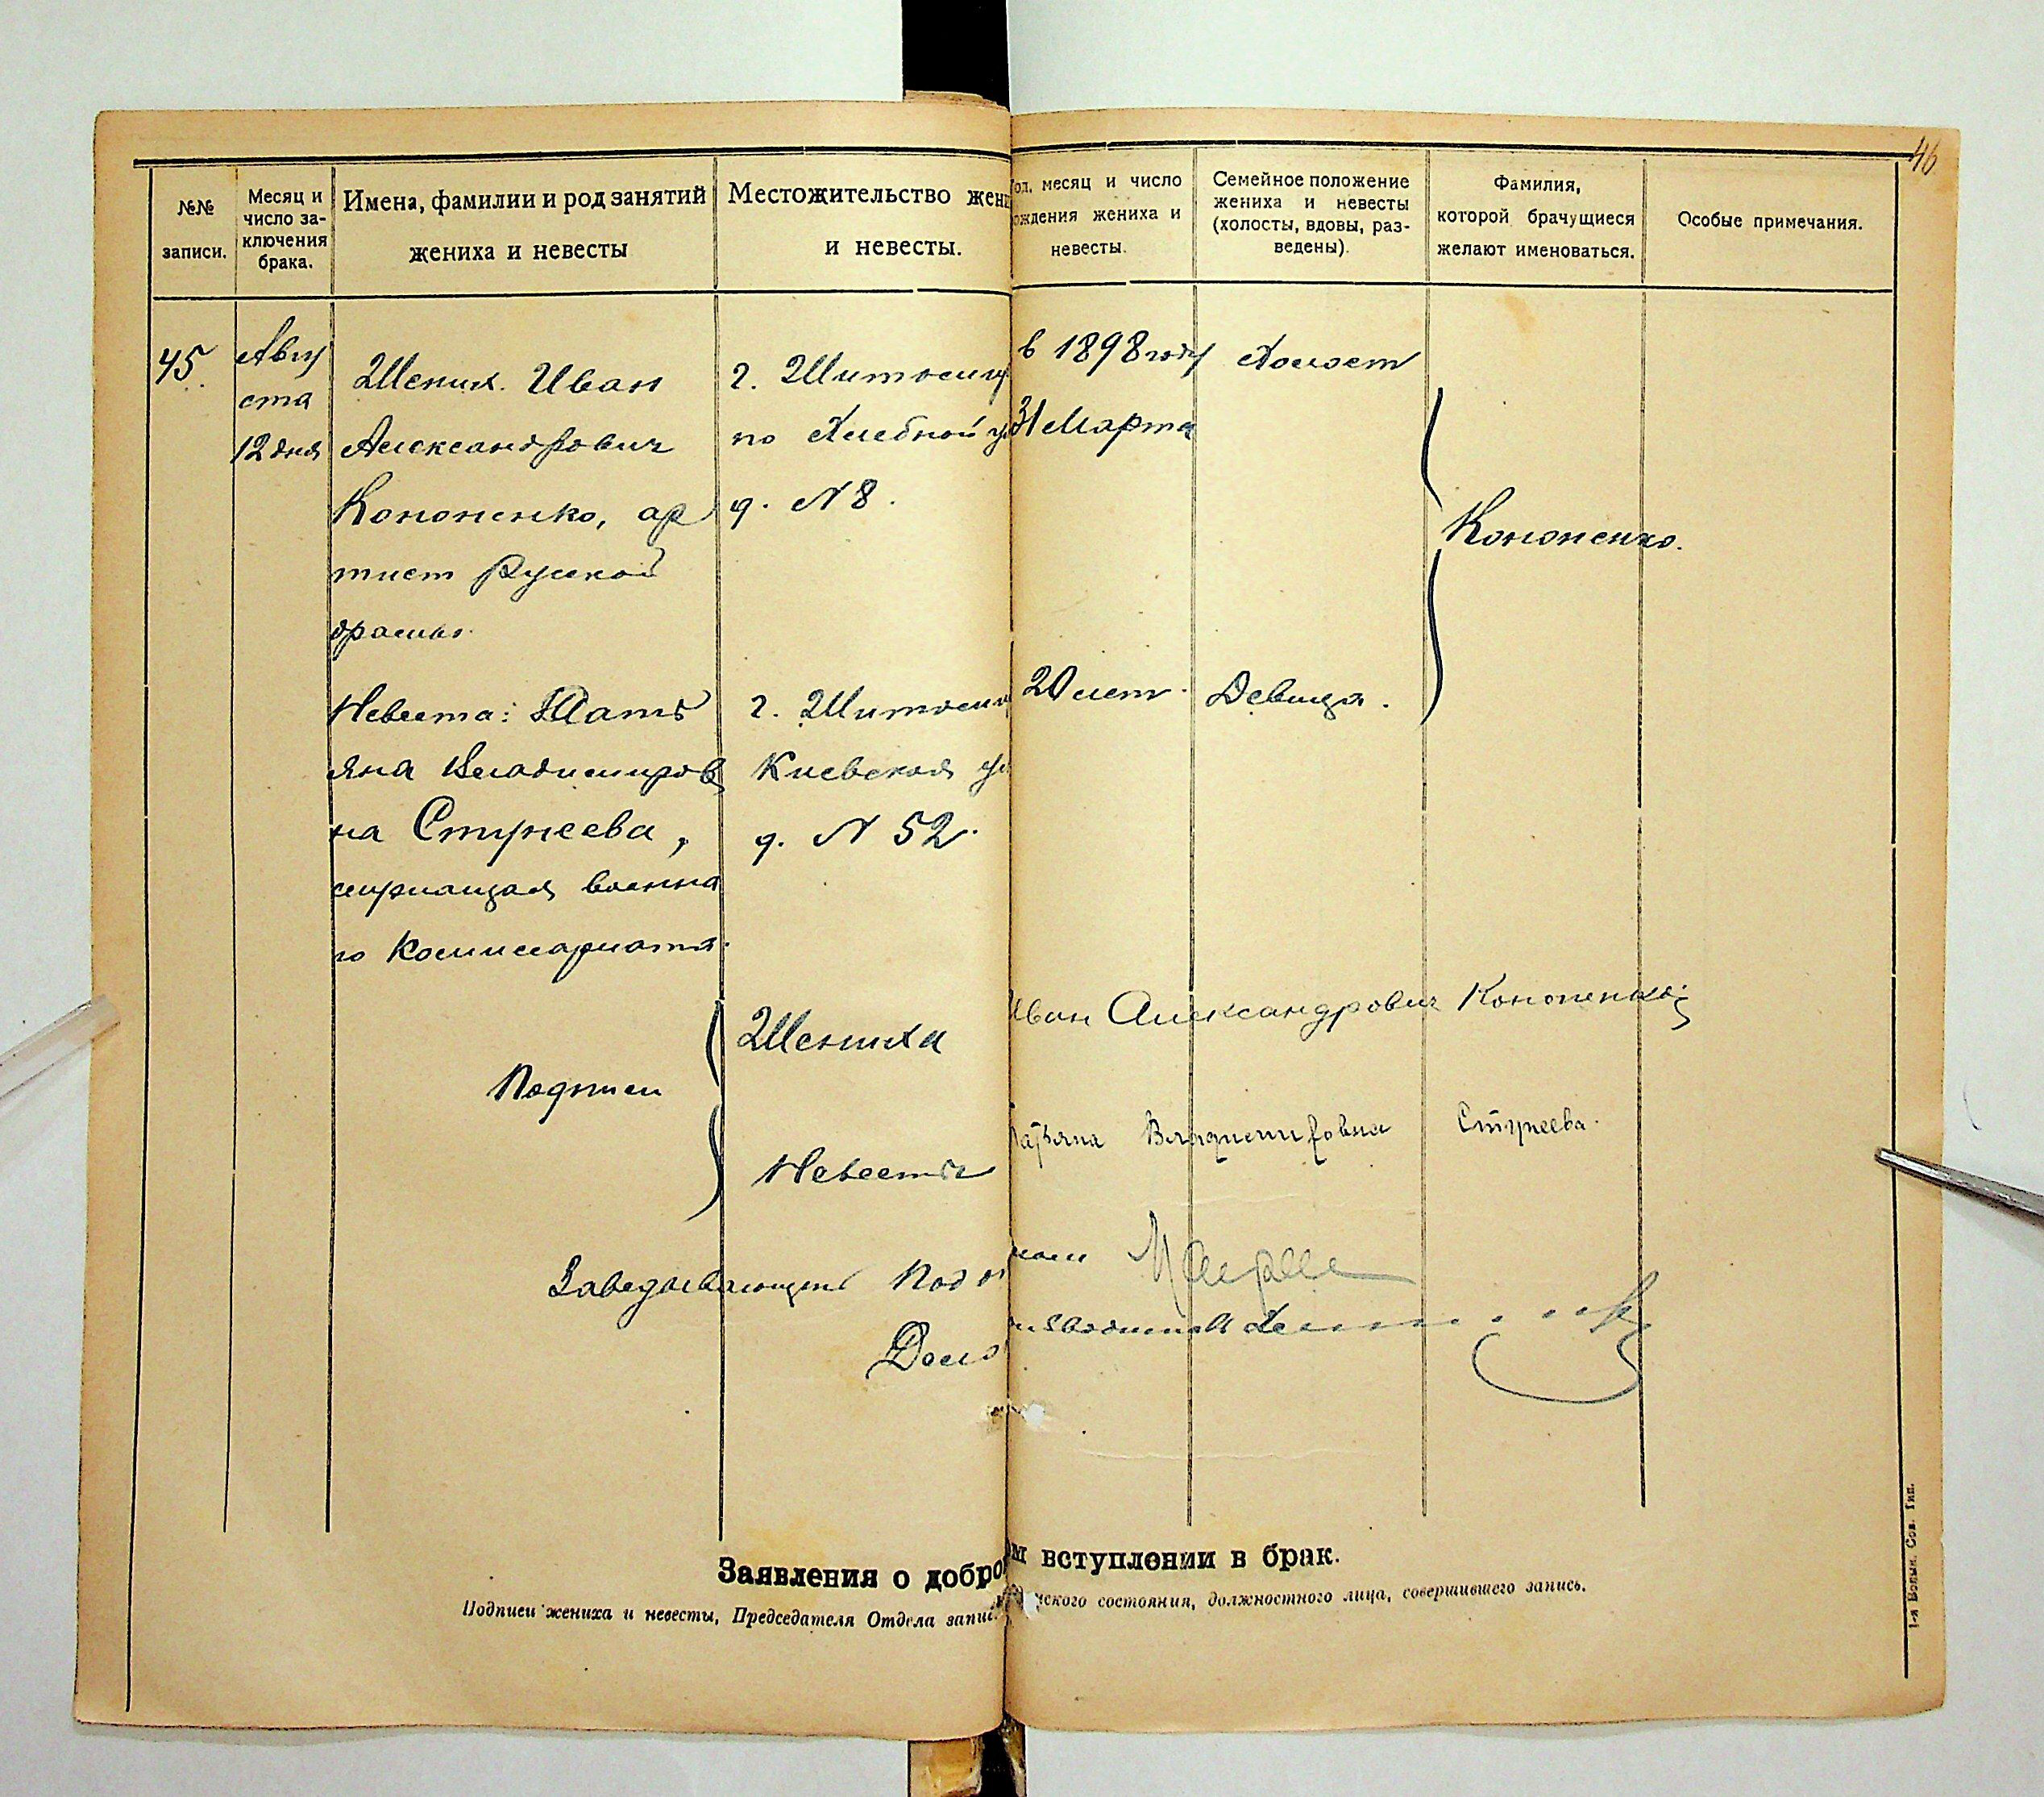 46
№№ записи.
Месяц и число за-
ключения
брака.
Имена, фамилии и род занятий
жениха и невесты
Местожительство жени
и невесты.
од, месяц и число
ождения жениха и
невесты.
Семейное положение
жениха и невесты
(холосты, вдовы, раз-
ведены).
Фамилия,
которой брачущиеся
желают именоваться.
Особые примечания.
45
Авгу
ста
12 дня
Жених. Иван
Александрович
Кононенко, ар
тист Руской
драмы.
г. Житомир
по Хлебной ул
д. N 8.
в 1898 году
31 Марта
Холост
Кононенко.
Невеста: Тать
яна Владимиров
на Стунеева,
служащая военна
го Комиссариата.
г. Житомир
Киевская ул
д. N 52.
20 лет.
Девица.
Подписи
Жениха
Иван Александрович Кононенко
Невесты
Татьяна Владимировна Стунеева.
Заведывающий Подо
Дело
Заявления о добро м вступлении в брак.
Подписи жениха и невесты, Председателя Отдела запис нского состояния, должностного лица, совершившего запись.
1-я Волын. Сов. Тип.